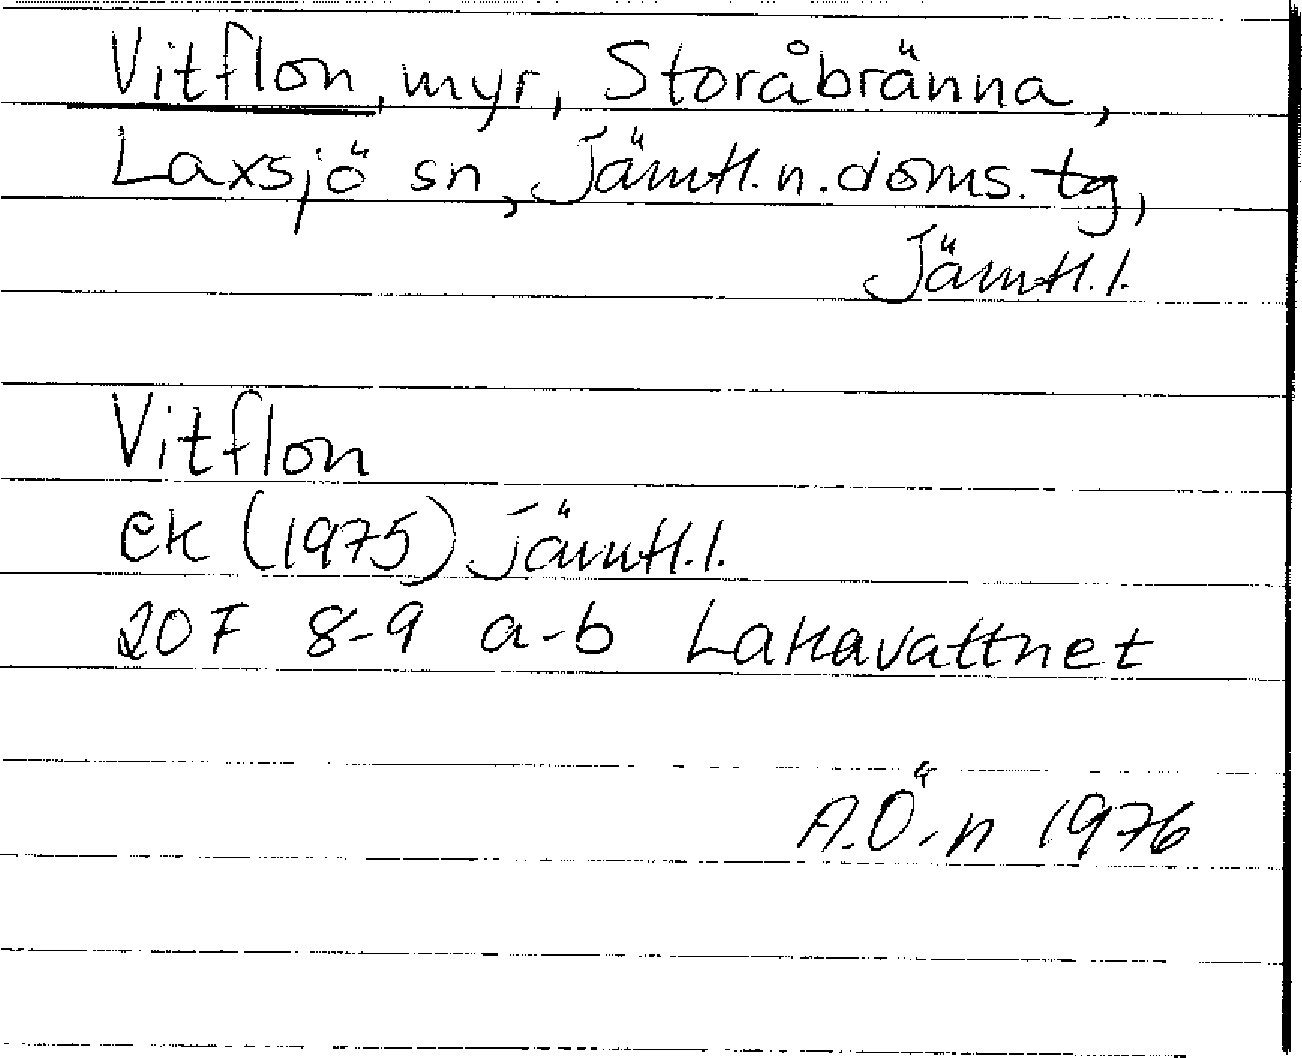 Vitflon, myr, Storåbränna,
Laxsjö sn, Jämtl. n. doms. tg,
Jämtl. l.
Vitflon
ek (1975) Jämtl. l.
20 F 8-9 a-b Lakavattnet
A.Ö-n 1976